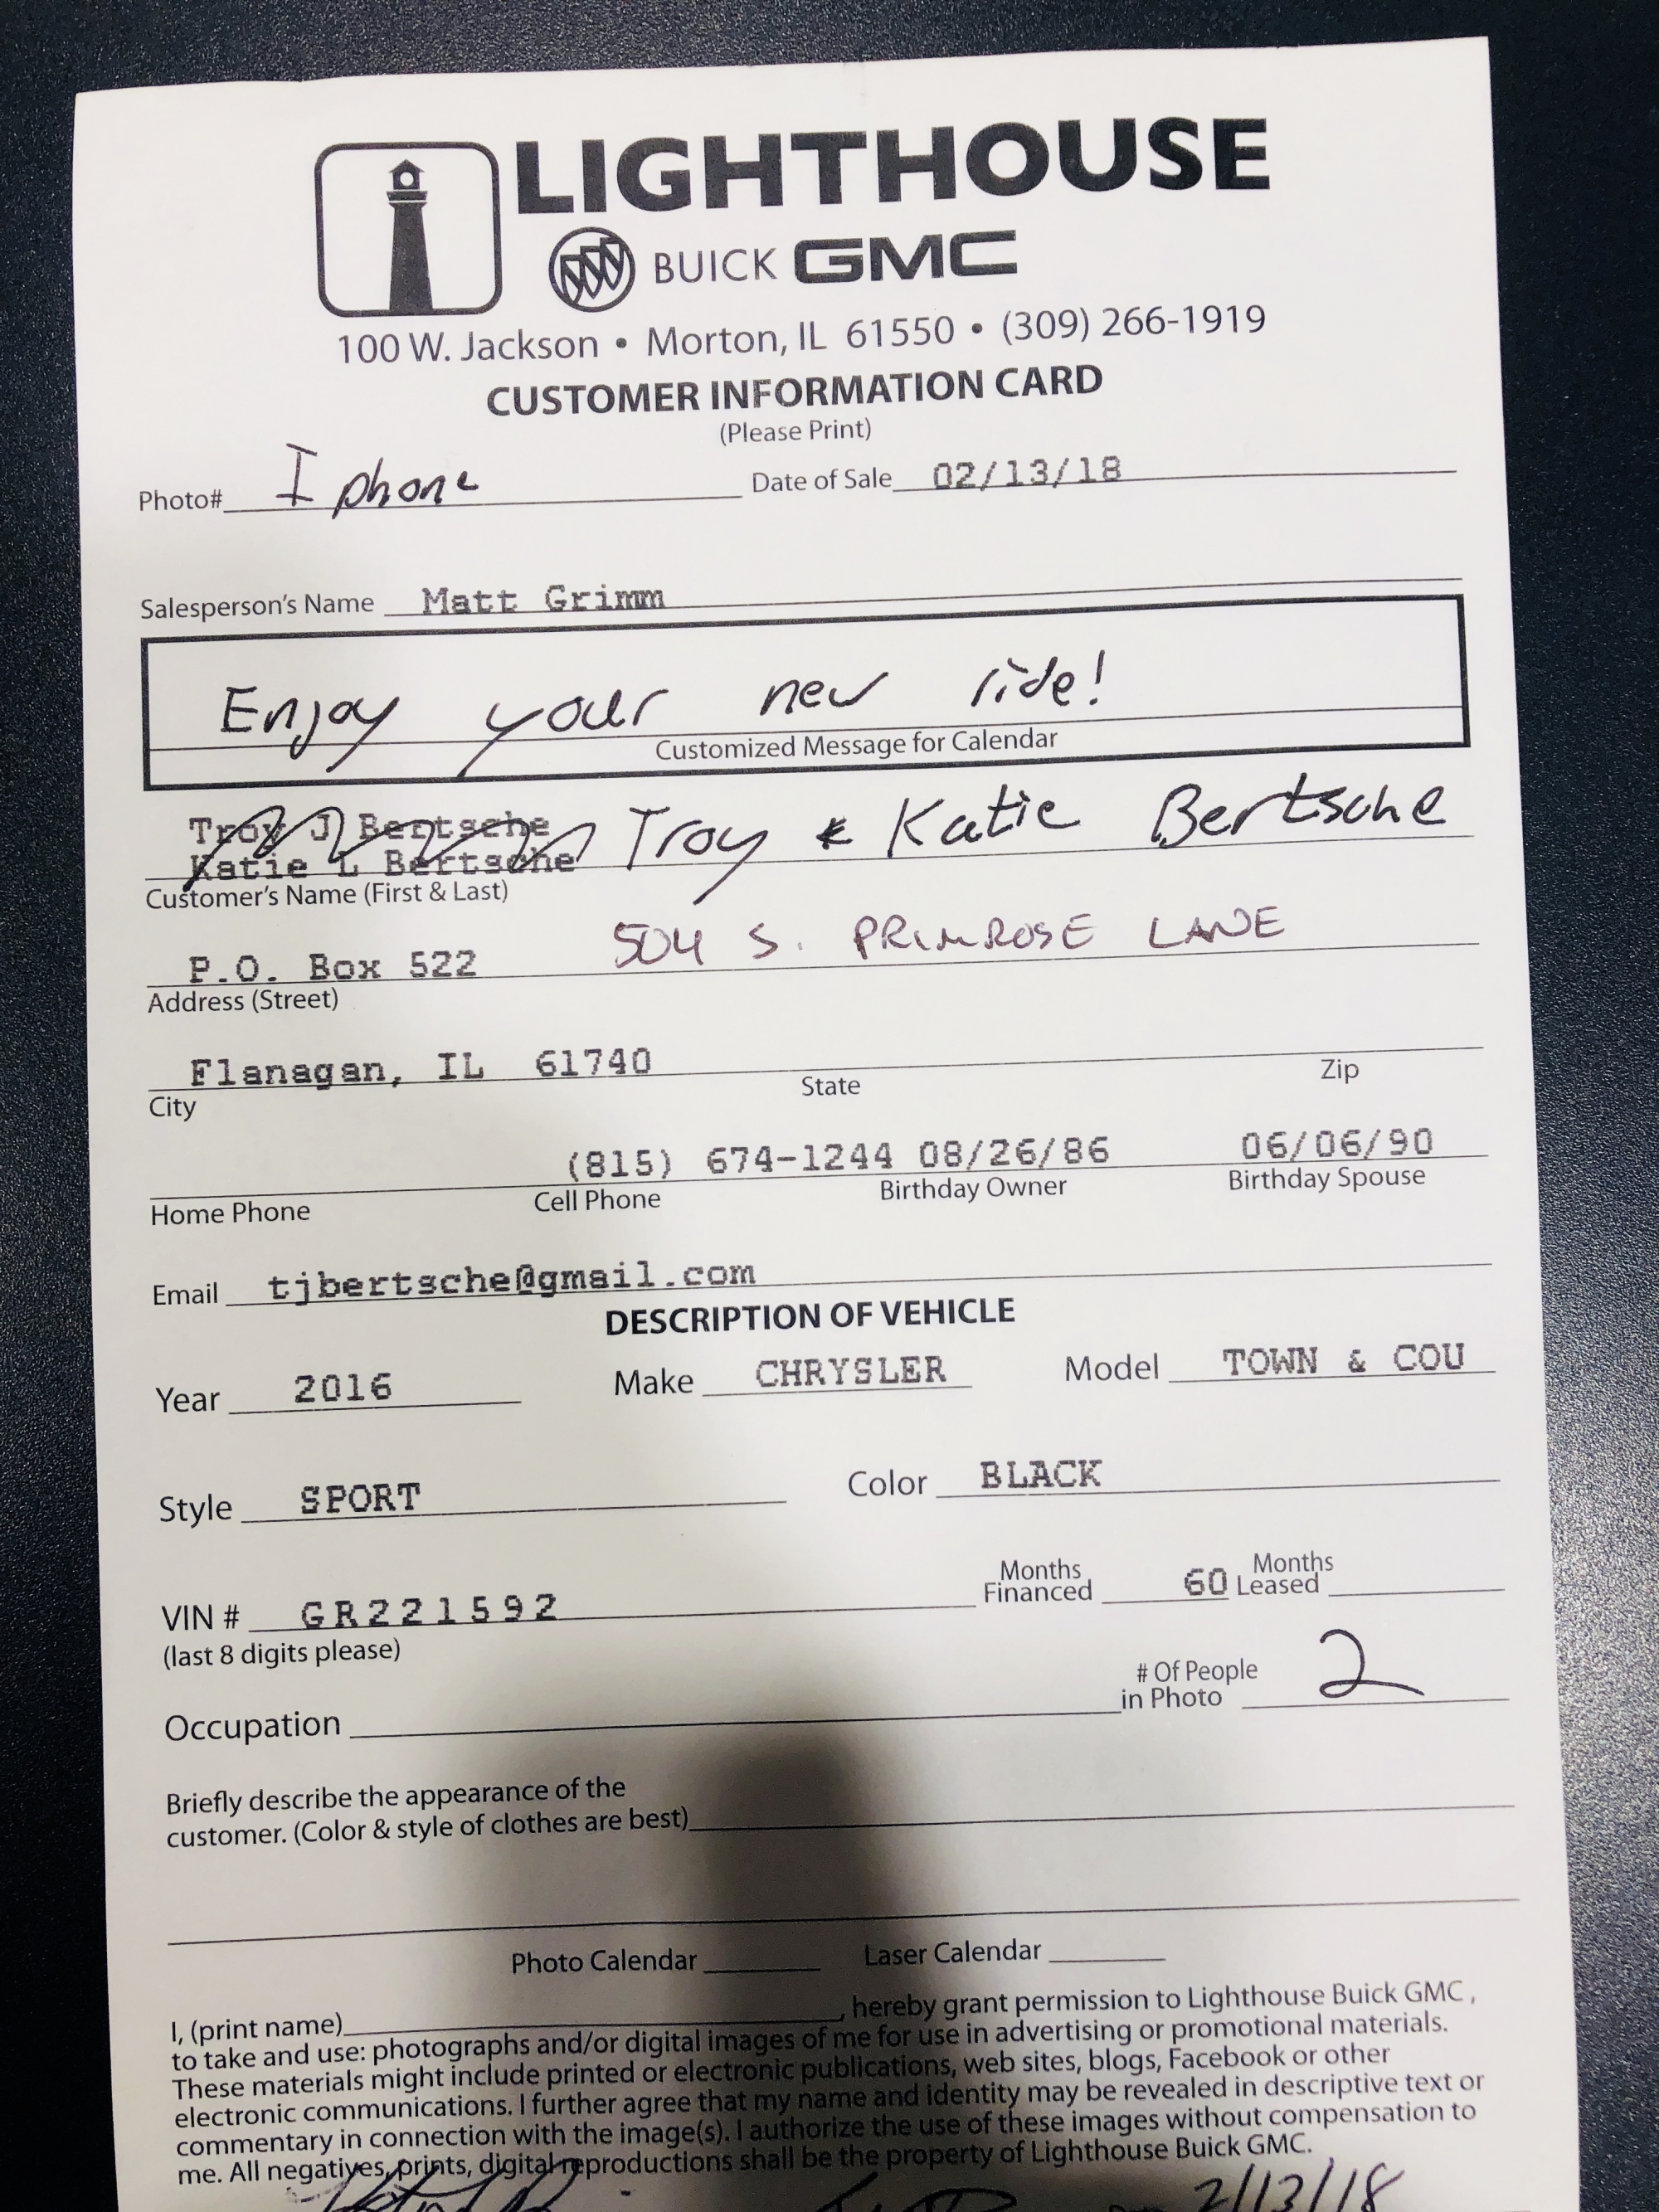 LIGHTHOUSE
BUICK GMC
100 W. Jackson • Morton, IL 61550 • (309) 266-1919
CUSTOMER INFORMATION CARD
(Please Print)
Photo# I phone Date of Sale 02/13/18
Salesperson's Name Matt Grimm
Enjoy your new ride!
Customized Message for Calendar
Troy J Bertsche
Katie L Bertsche Troy & Katie Bertsche
Customer's Name (First & Last)
P.O. Box 522 504 S. PRIMROSE LANE
Address (Street)
Flanagan, IL 61740
City State Zip
(815) 674-1244 08/26/86 06/06/90
Home Phone Cell Phone Birthday Owner Birthday Spouse
Email tjbertsche@gmail.com
DESCRIPTION OF VEHICLE
Year 2016 Make CHRYSLER Model TOWN & COU
Style SPORT Color BLACK
VIN # GR221592 Months Financed 60 Months Leased
(last 8 digits please)
Occupation # Of People in Photo 2
Briefly describe the appearance of the
customer. (Color & style of clothes are best)
Photo Calendar Laser Calendar
I, (print name) , hereby grant permission to Lighthouse Buick GMC ,
to take and use: photographs and/or digital images of me for use in advertising or promotional materials.
These materials might include printed or electronic publications, web sites, blogs, Facebook or other
electronic communications. I further agree that my name and identity may be revealed in descriptive text or
commentary in connection with the image(s). I authorize the use of these images without compensation to
me. All negatives, prints, digital reproductions shall be the property of Lighthouse Buick GMC.
2/13/18